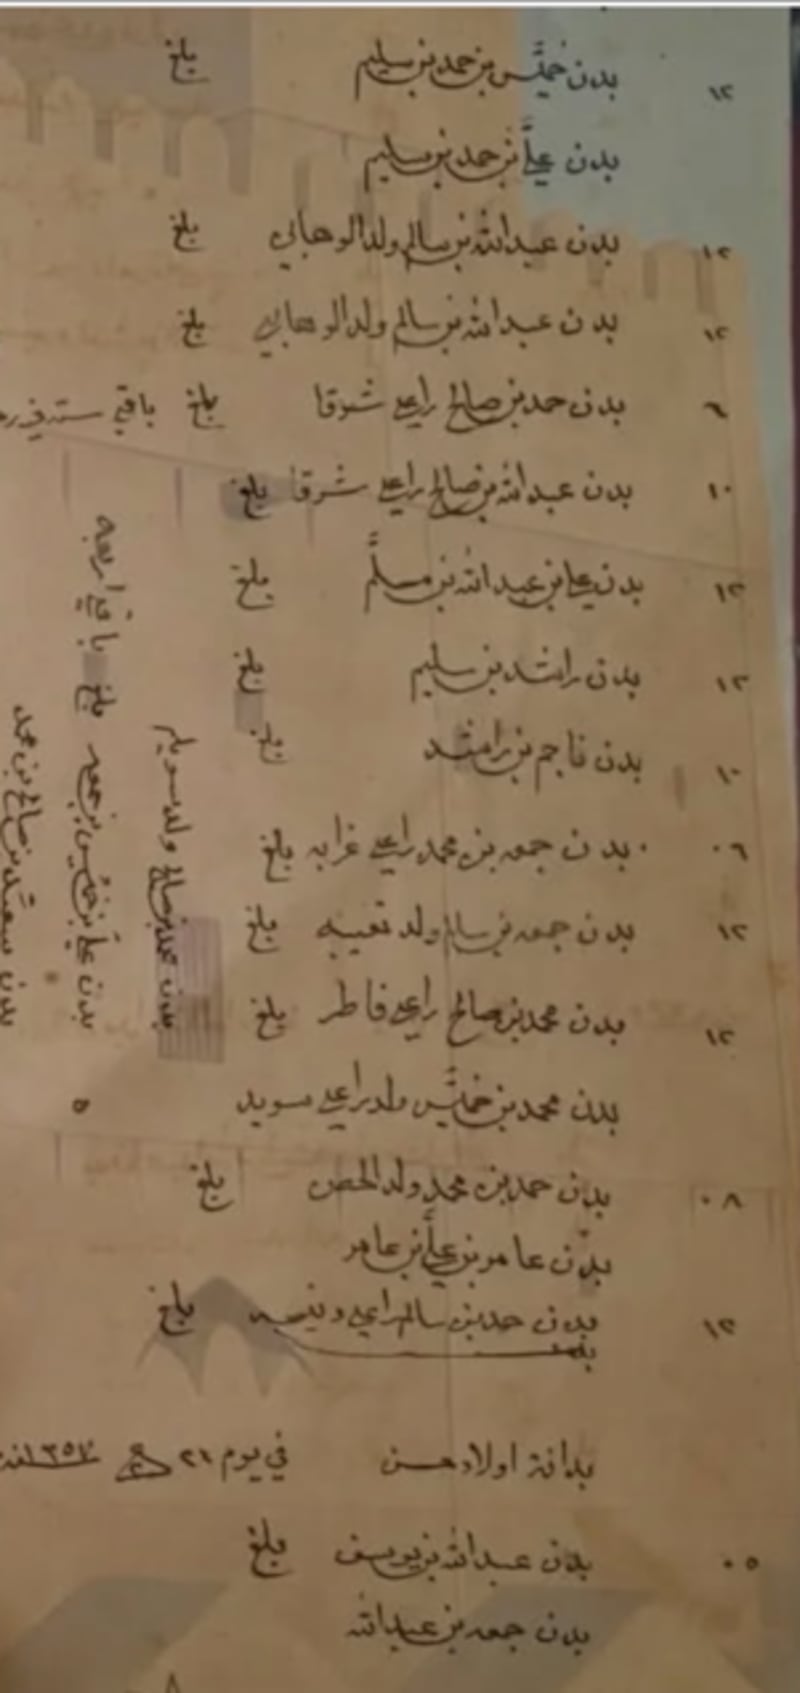 ١٢ بدن خميّس بن حمد بن سليم بلغ
بدن عليّ بن حمد بن سليم
١٢ بدن عبدالله بن سالم ولد الوهابي بلغ
١٢ بدن عبدالله بن سالم ولد الوهابي بلغ
٦ بدن حمد بن صالح راعي شوقا بلغ باقي ستة في
١٠ بدن عبدالله بن صالح راعي شوقا بلغ
١٢ بدن علي بن عبدالله بن مسلّم بلغ
١٢ بدن راشد بن سليم بلغ
١٠ بدن ناجم بن راشد بلغ
٠٦ بدن جمعه بن محمد راعي غرابه بلغ
١٢ بدن جمعه بن سالم ولد نعيبه بلغ
١٢ بدن محمد بن صالح راعي فاطر بلغ
بدن محمد بن خميّس ولد راعي سويد
٠٨ بدن حمد بن محمد ولد الحص بلغ
بدن عامر بن عليّ بن عامر
١٢ بدن حمد بن سالم راعي بلغ
بدن محمد بن صالح ولد سويلم
بدن عليّ بن خميّس بن جمعه بلغ باقي اربعه
٥
بدن سعيّد بن صالح بن محمد
بدانة اولاد حسن في يوم ٢١ ١٣٥٧
٠٥ بدن عبدالله بن يوسف بلغ
بدن جمعه بن عبدالله